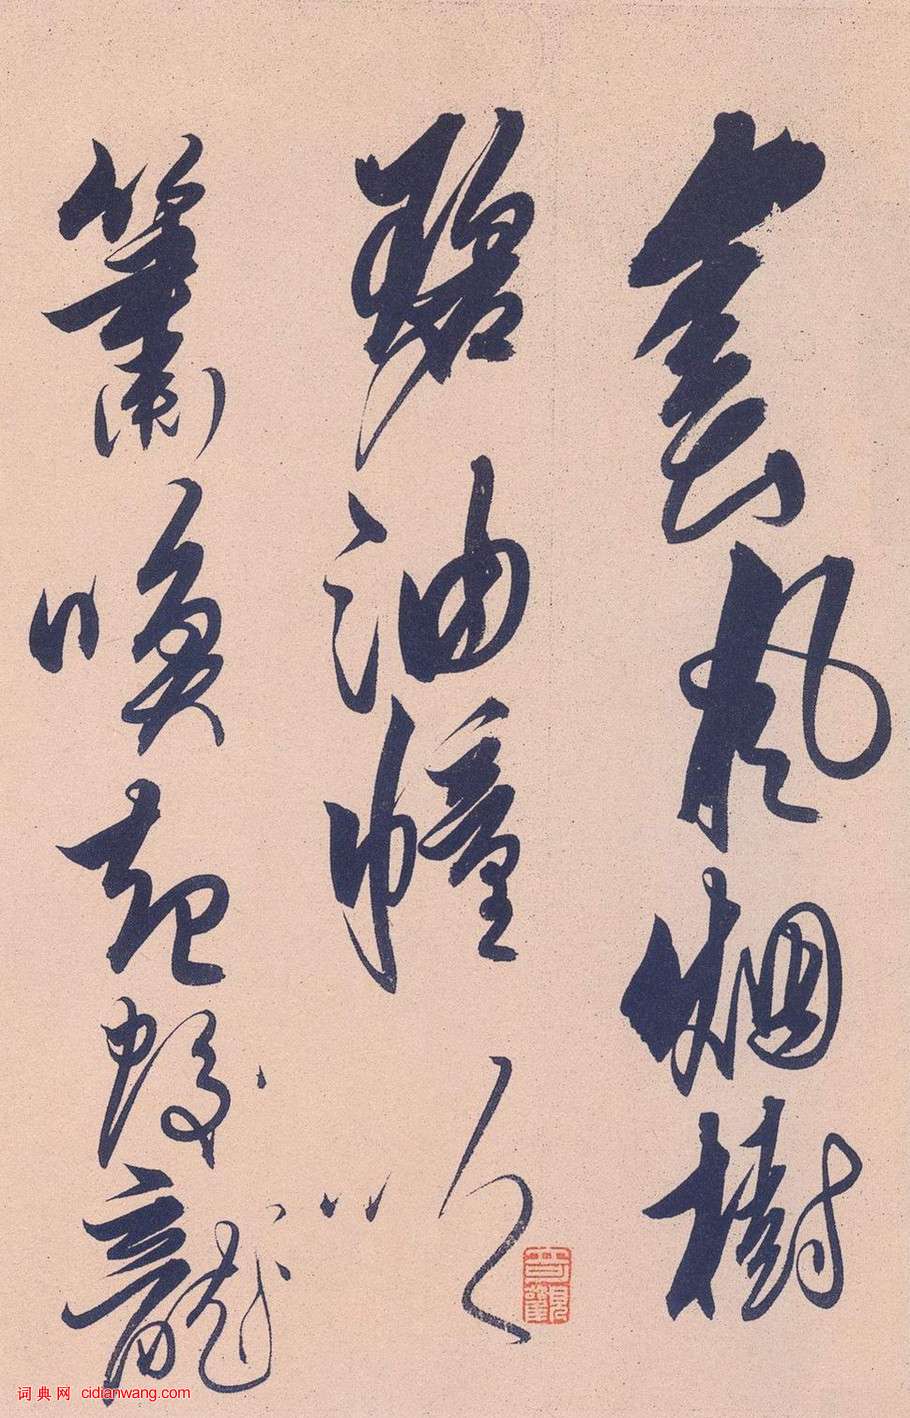 風烟樹
碧油幢吹
簫喚起蛟龍
词典网 cidianwang.com